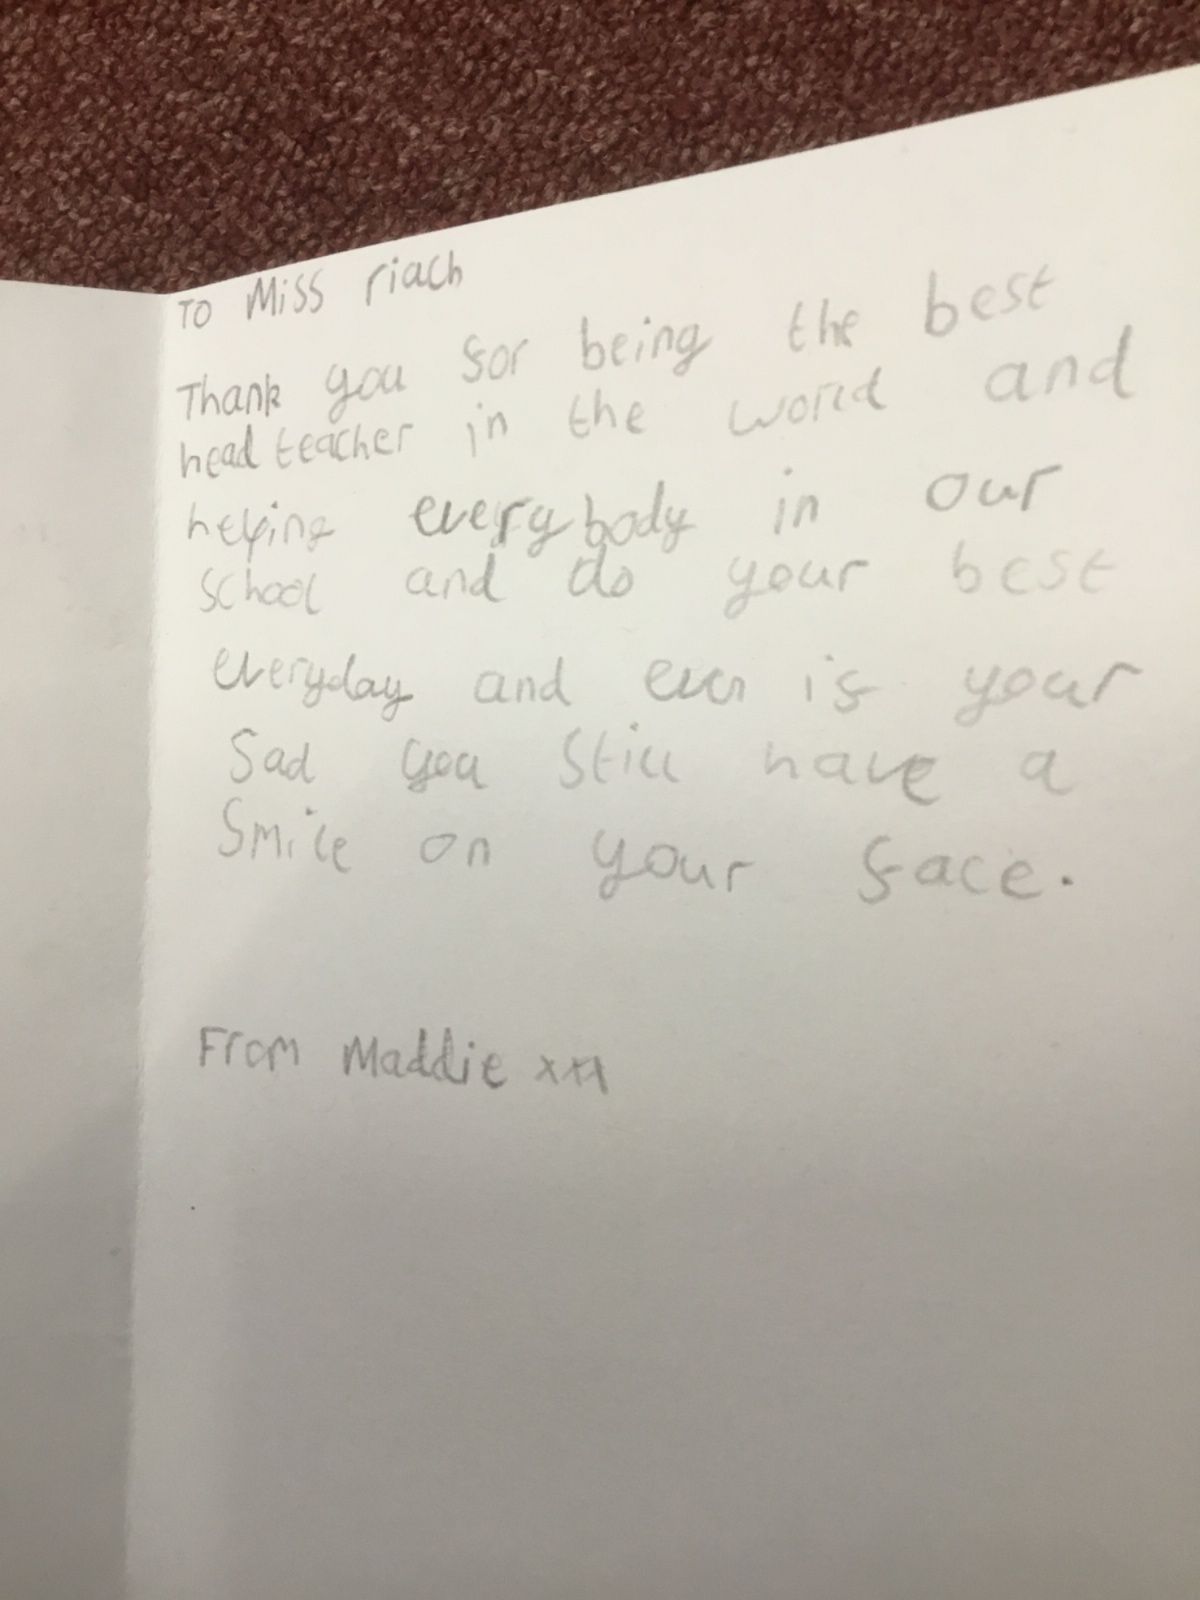 To Miss riach
Thank you for being the best
head teacher in the world and
helping everybody in our
school and do your best
everyday and even if your
Sad you Still have a
Smile on your face.
From Maddie xxx